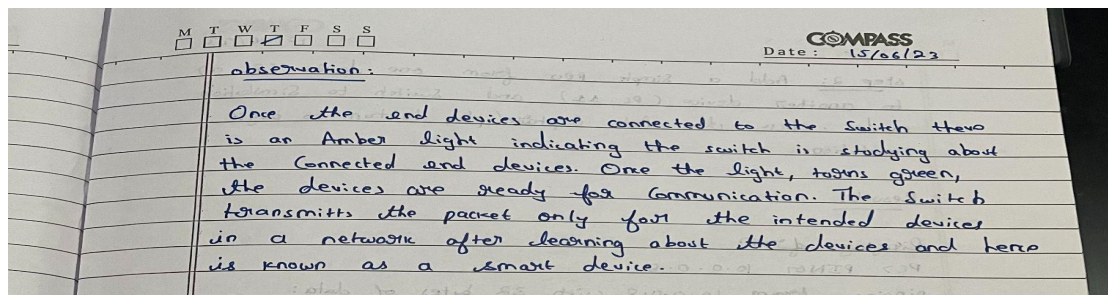 M T W T F S S
COMPASS
Date : 15/06/23
observation :
Once the end devices are connected to the switch there
is an Amber light indicating the switch is studying about
the Connected end devices. Once the light, turns green,
the devices are ready for Communication. The Switch
transmitts the packet only for the intended devices
in a network after learning about the devices and hence
is known as a smart device.